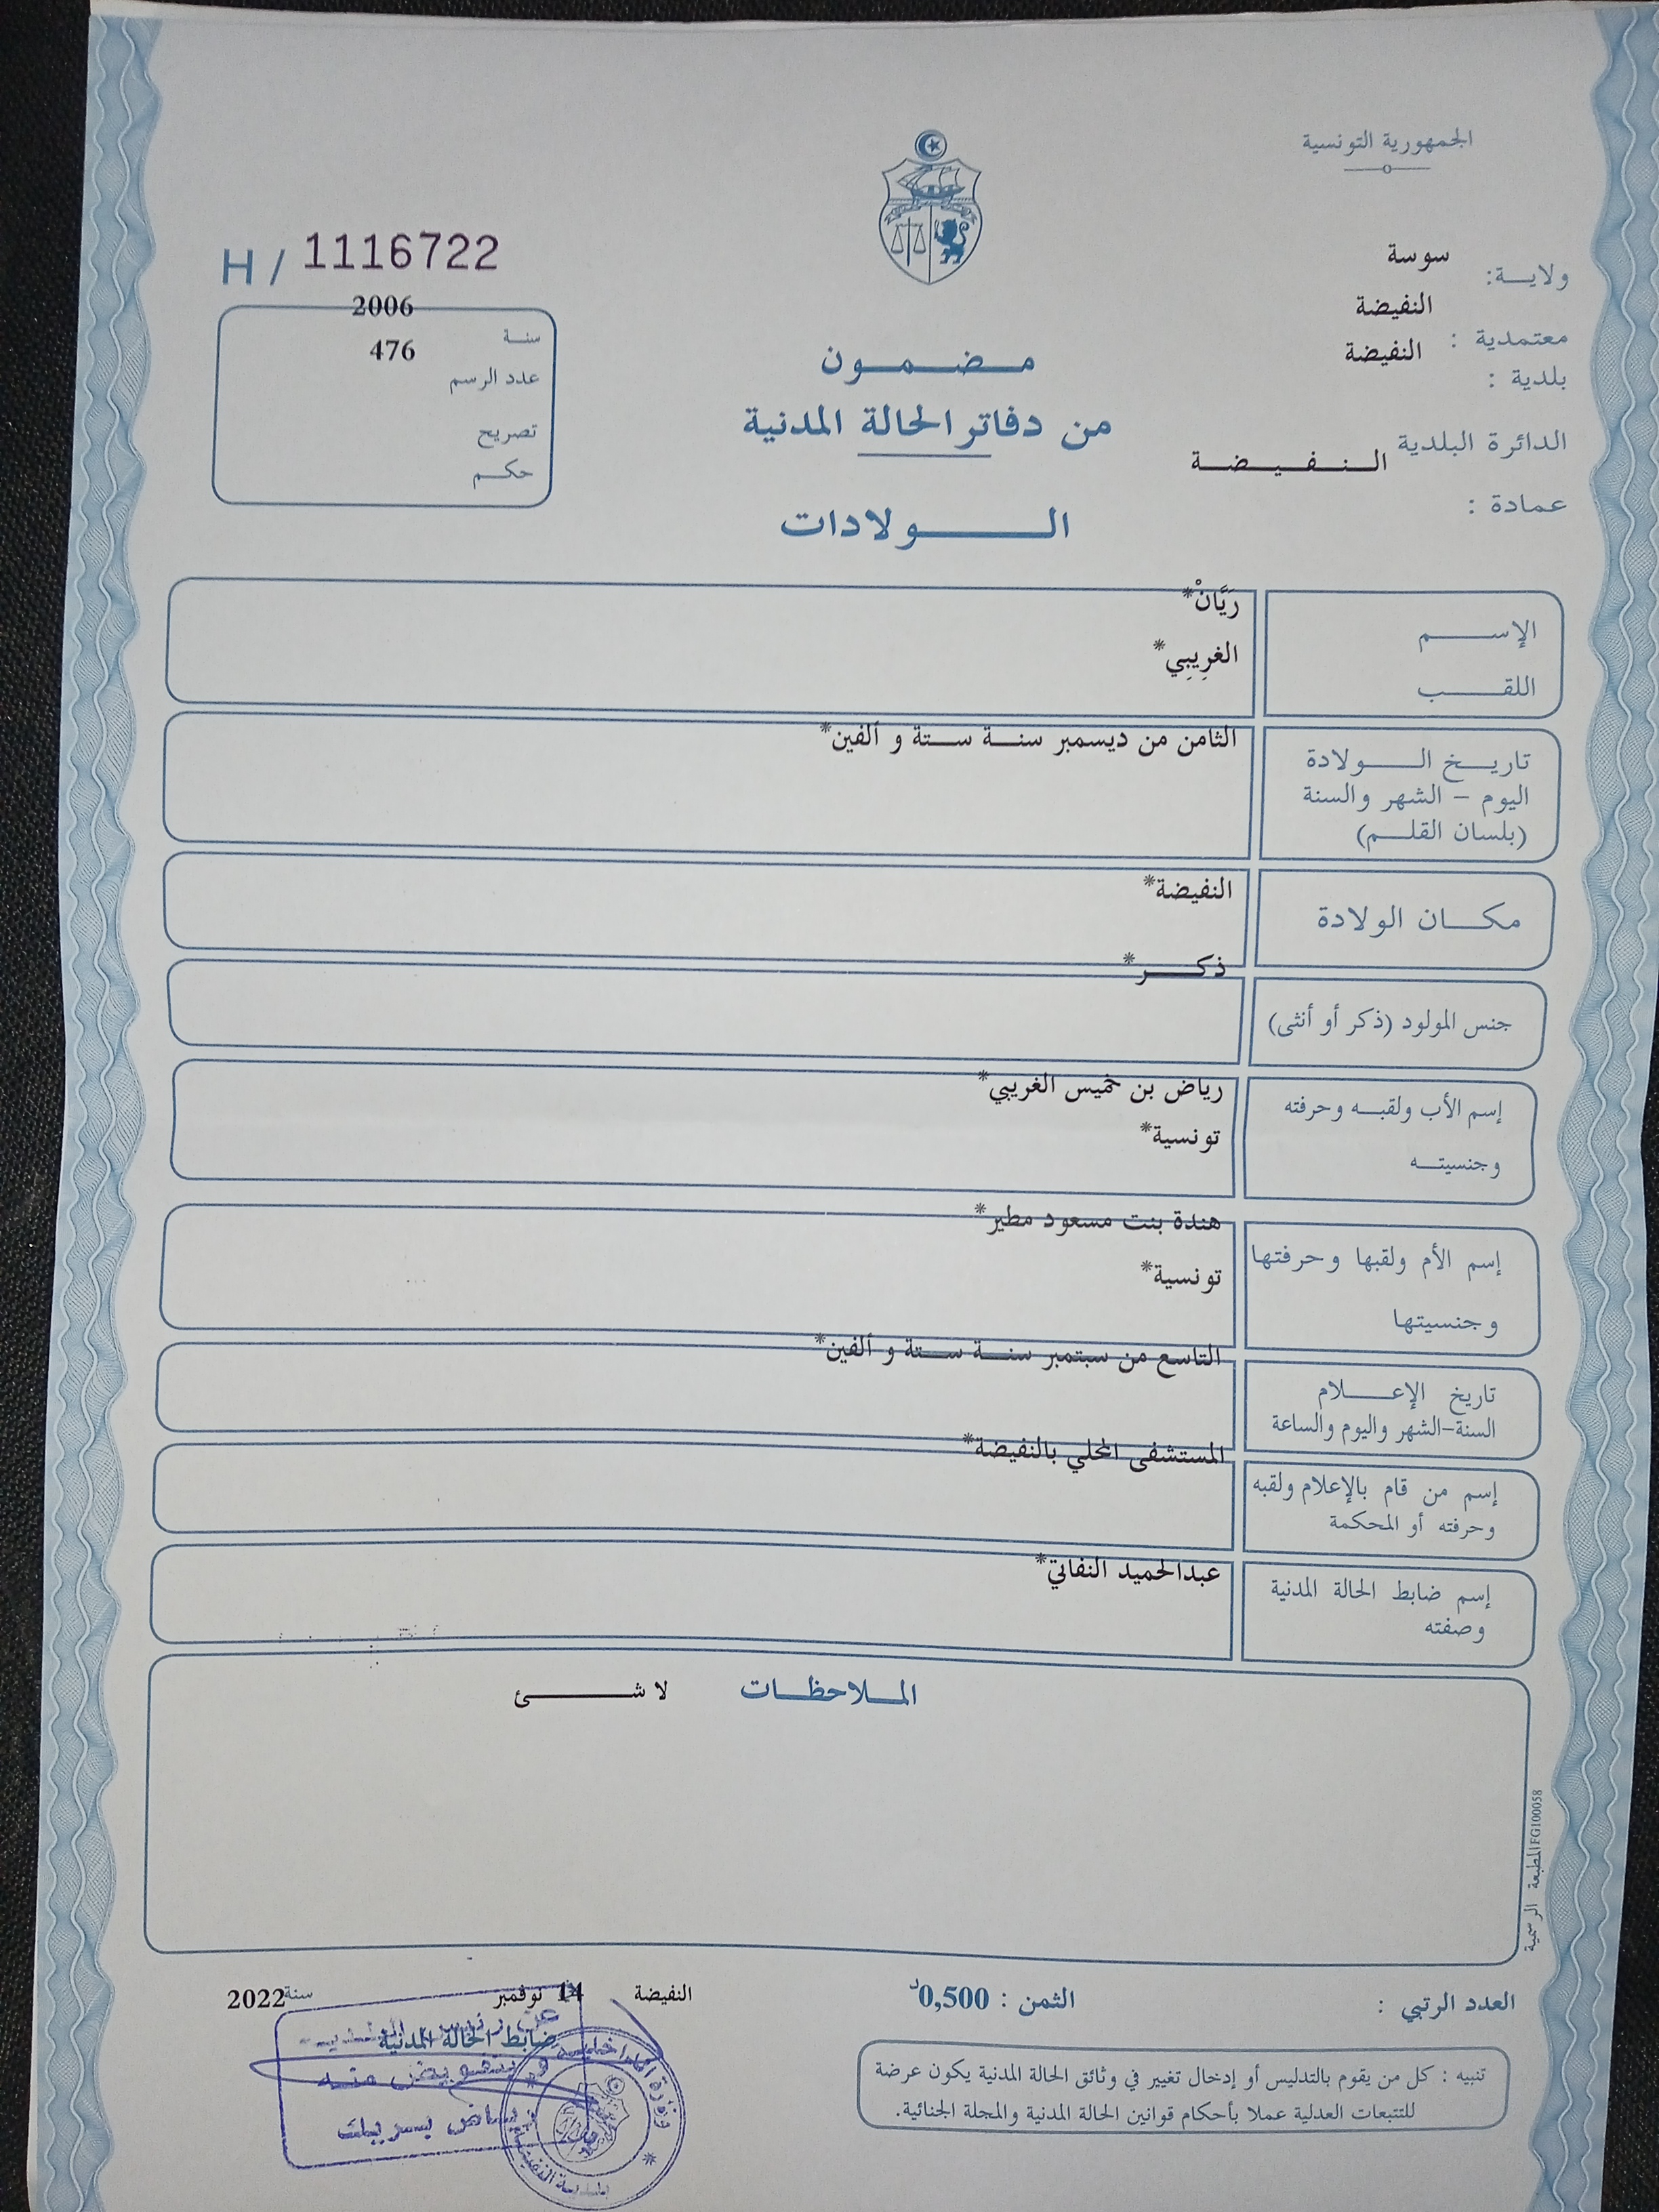 الجمهورية التونسية
ولايـــة: سوسة
معتمدية : النفيضة
بلدية : النفيضة
الدائرة البلدية النفيضة
عمادة :
H / 1116722
سنة 2006
عدد الرسم 476
تصريح
حكم
مضمون
من دفاتر الحالة المدنية
الولادات
الإسم رَيَّانْ*
اللقب الغرِيبِي*
تاريخ الولادة الثامن من ديسمبر سنة ستة و ألفين*
اليوم – الشهر والسنة
(بلسان القلم)
مكان الولادة النفيضة*
جنس المولود (ذكر أو أنثى) ذكر*
إسم الأب ولقبه وحرفته رياض بن خميس الغريبي*
وجنسيته تونسية*
إسم الأم ولقبها وحرفتها هندة بنت مسعود مطير*
وجنسيتها تونسية*
تاريخ الإعلام التاسع من سبتمبر سنة ستة و ألفين*
السنة-الشهر واليوم والساعة
إسم من قام بالإعلام ولقبه المستشفى المحلي بالنفيضة*
وحرفته أو المحكمة
إسم ضابط الحالة المدنية عبدالحميد النفاتي*
وصفته
الملاحظات لا شئ
المطبعة الرسمية FG100058
العدد الرتبي :
الثمن : 0,500د
النفيضة 14 نوفمبر سنة 2022
ضابط الحالة المدنية
عن رئيس البلدية
و بتفويض منه
وزارة الداخلية
بلدية النفيضة
تنبيه : كل من يقوم بالتدليس أو إدخال تغيير في وثائق الحالة المدنية يكون عرضة
للتتبعات العدلية عملا بأحكام قوانين الحالة المدنية والمجلة الجنائية.